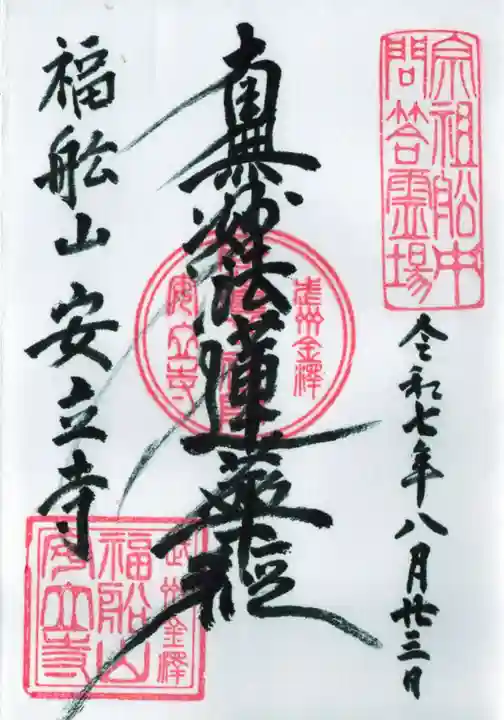 宗祖船中
問答霊場
令和七年八月廿三日
南無妙法蓮華経
武州金澤
安立寺
福舩山 安立寺
武州金澤
福船山
安立寺